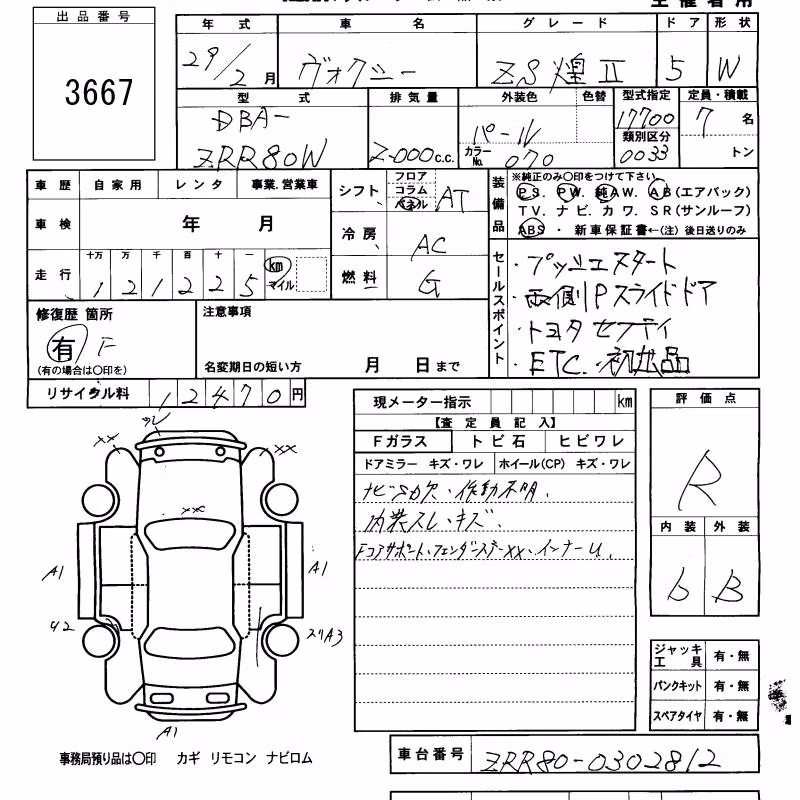 出品番号
3667
年式 車名 グレード ドア 形状
29/2月 ヴォクシー ZS煌II 5 W
型式 排気量 外装色 色替 型式指定 定員・積載
DBA- パール 17700 7名
類別区分
ZRR80W 2-000c.c. カラーNo. 070 0033 トン
車歴 自家用 レンタ 事業.営業車
シフト フロア コラム パネル AT
装備品
※純正のみ〇印をつけて下さい
PS. PW. 純AW. AB(エアバック)
TV. ナビ. カワ. SR(サンルーフ)
ABS ・ 新車保証書←(注) 後日送りのみ
車検 年 月
冷房 AC
走行 十万 万 千 百 十 一
1 2 1 2 2 5 km マイル
燃料 G
セールスポイント
・プッシュスタート
・両側Pスライドドア
・トヨタセフティ
・ETC.・初出品
修復歴 箇所
有 F
(有の場合は〇印を)
注意事項
名変期日の短い方 月 日まで
リサイクル料 12470円
現メーター指示 km
【査定員記入】
Fガラス トビ石 ヒビワレ
ドアミラー キズ・ワレ ホイール(CP) キズ・ワレ
ナビSD欠・作動不明.
内装スレ・キズ.
Fコアサポート、フェンダーステーXX、インナーU.
評価点
R
内装 外装
b B
XX XX
XX
A1 A1
U2 A3
A1
ジャッキ工具 有・無
パンクキット 有・無
スペアタイヤ 有・無
事務局預り品は〇印 カギ リモコン ナビロム
車台番号 ZRR80-0302812